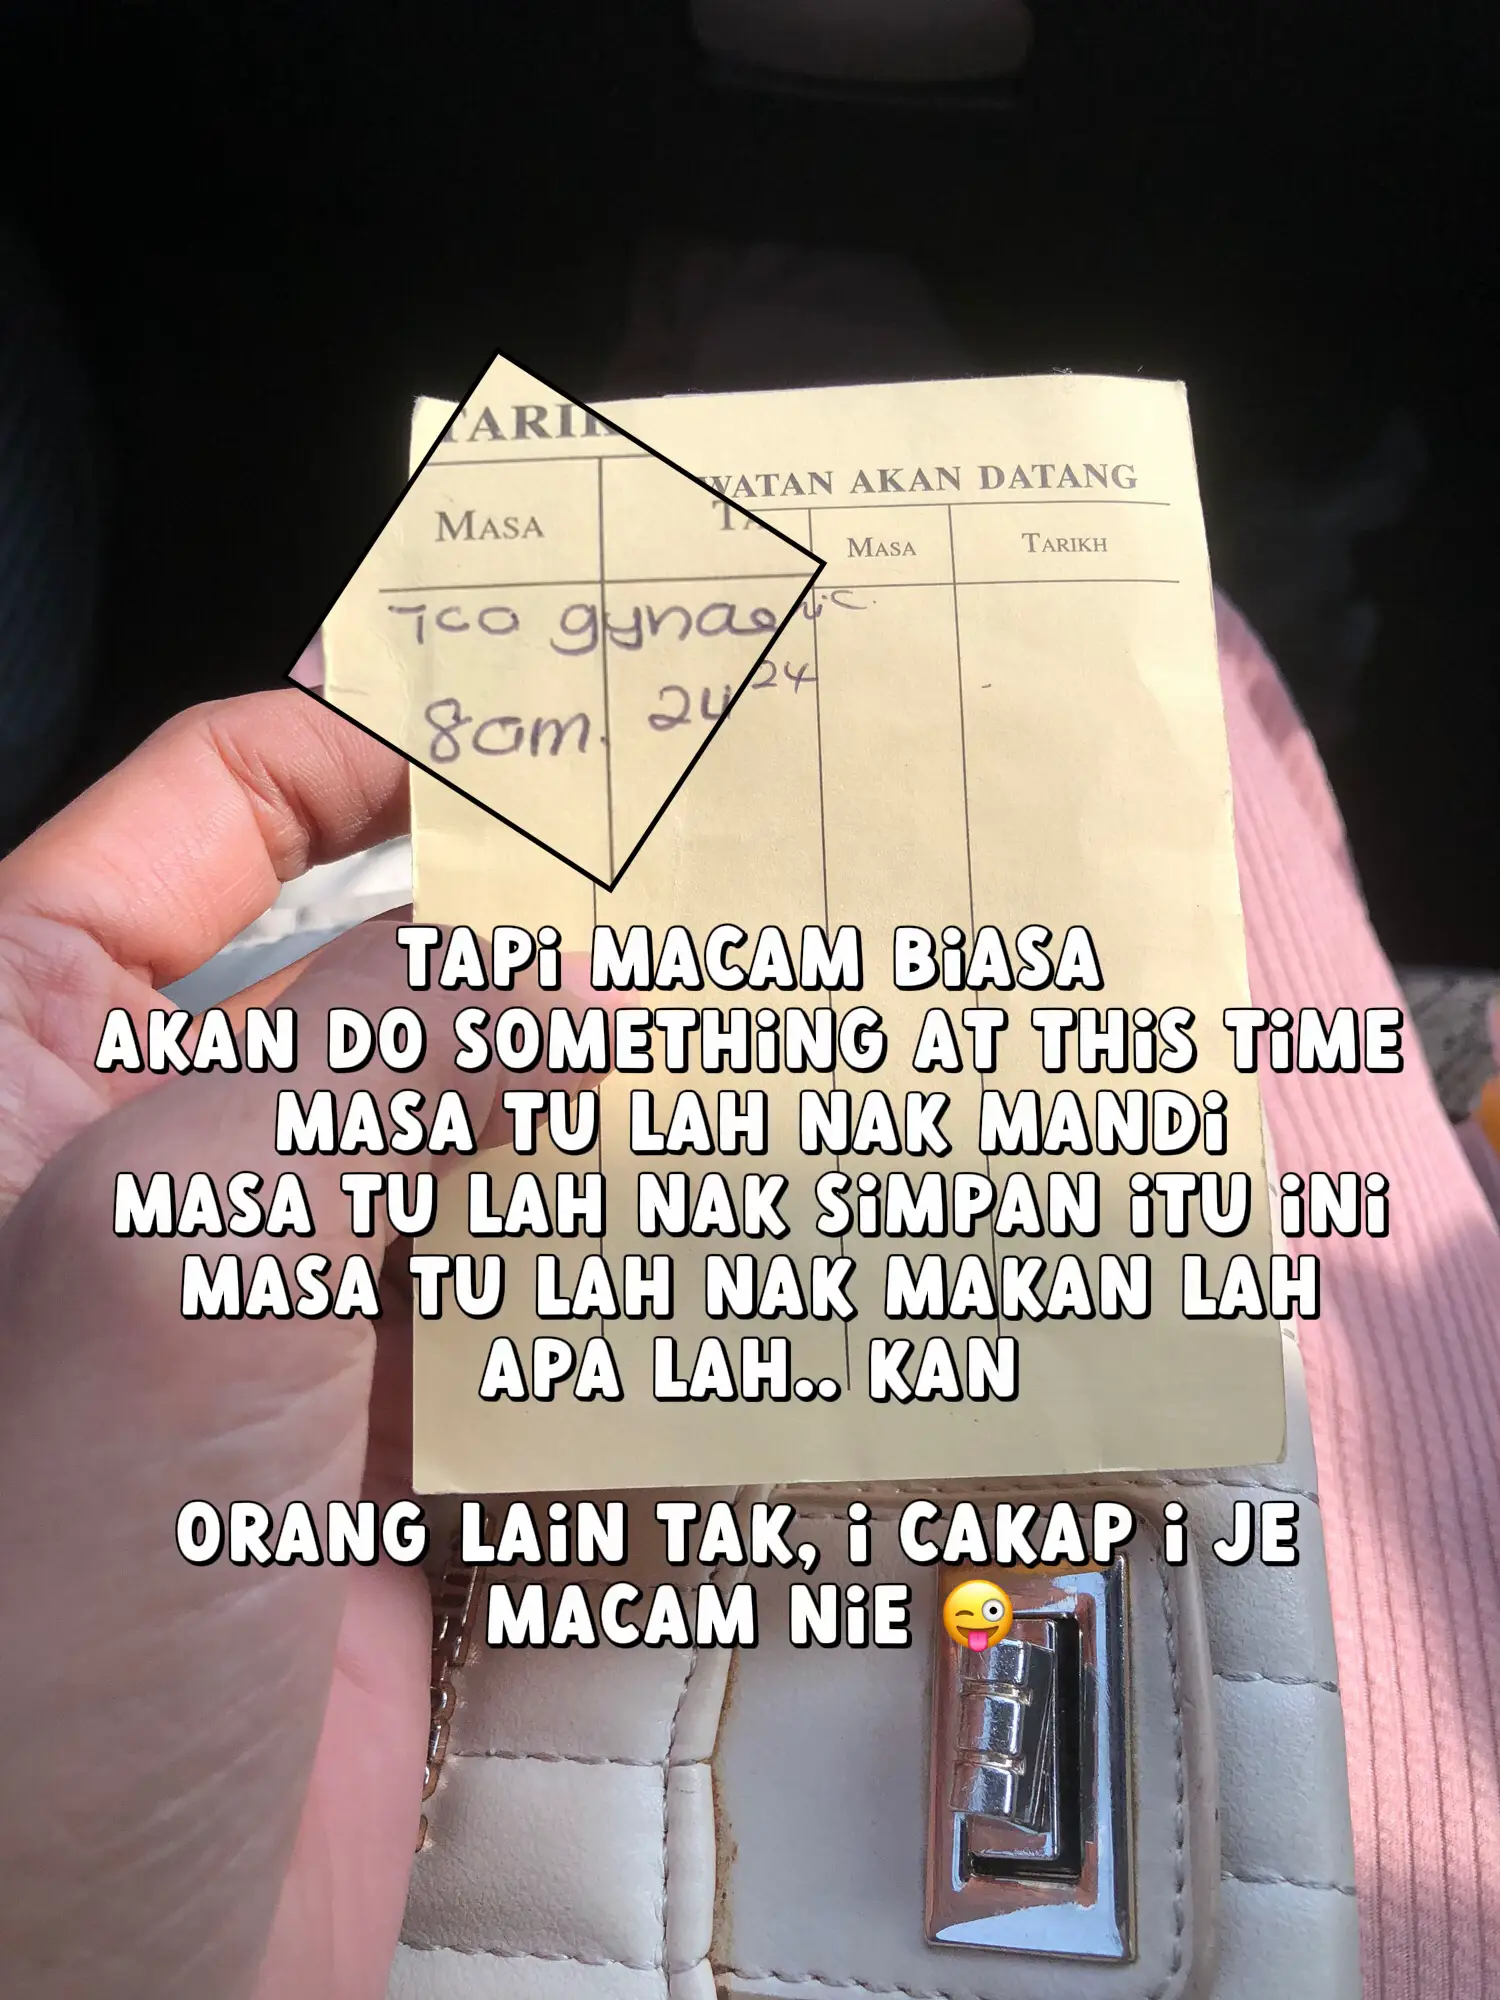 TARIK
WATAN AKAN DATANG
MASA TA MASA TARIKH
TCO gynae
8am. 24 24
TAPi MACAM BiASA
AKAN DO SOMETHiNG AT THiS TiME
MASA TU LAH NAK MANDi
MASA TU LAH NAK SiMPAN iTU iNi
MASA TU LAH NAK MAKAN LAH
APA LAH.. KAN
ORANG LAiN TAK, i CAKAP i JE
MACAM NiE 😜